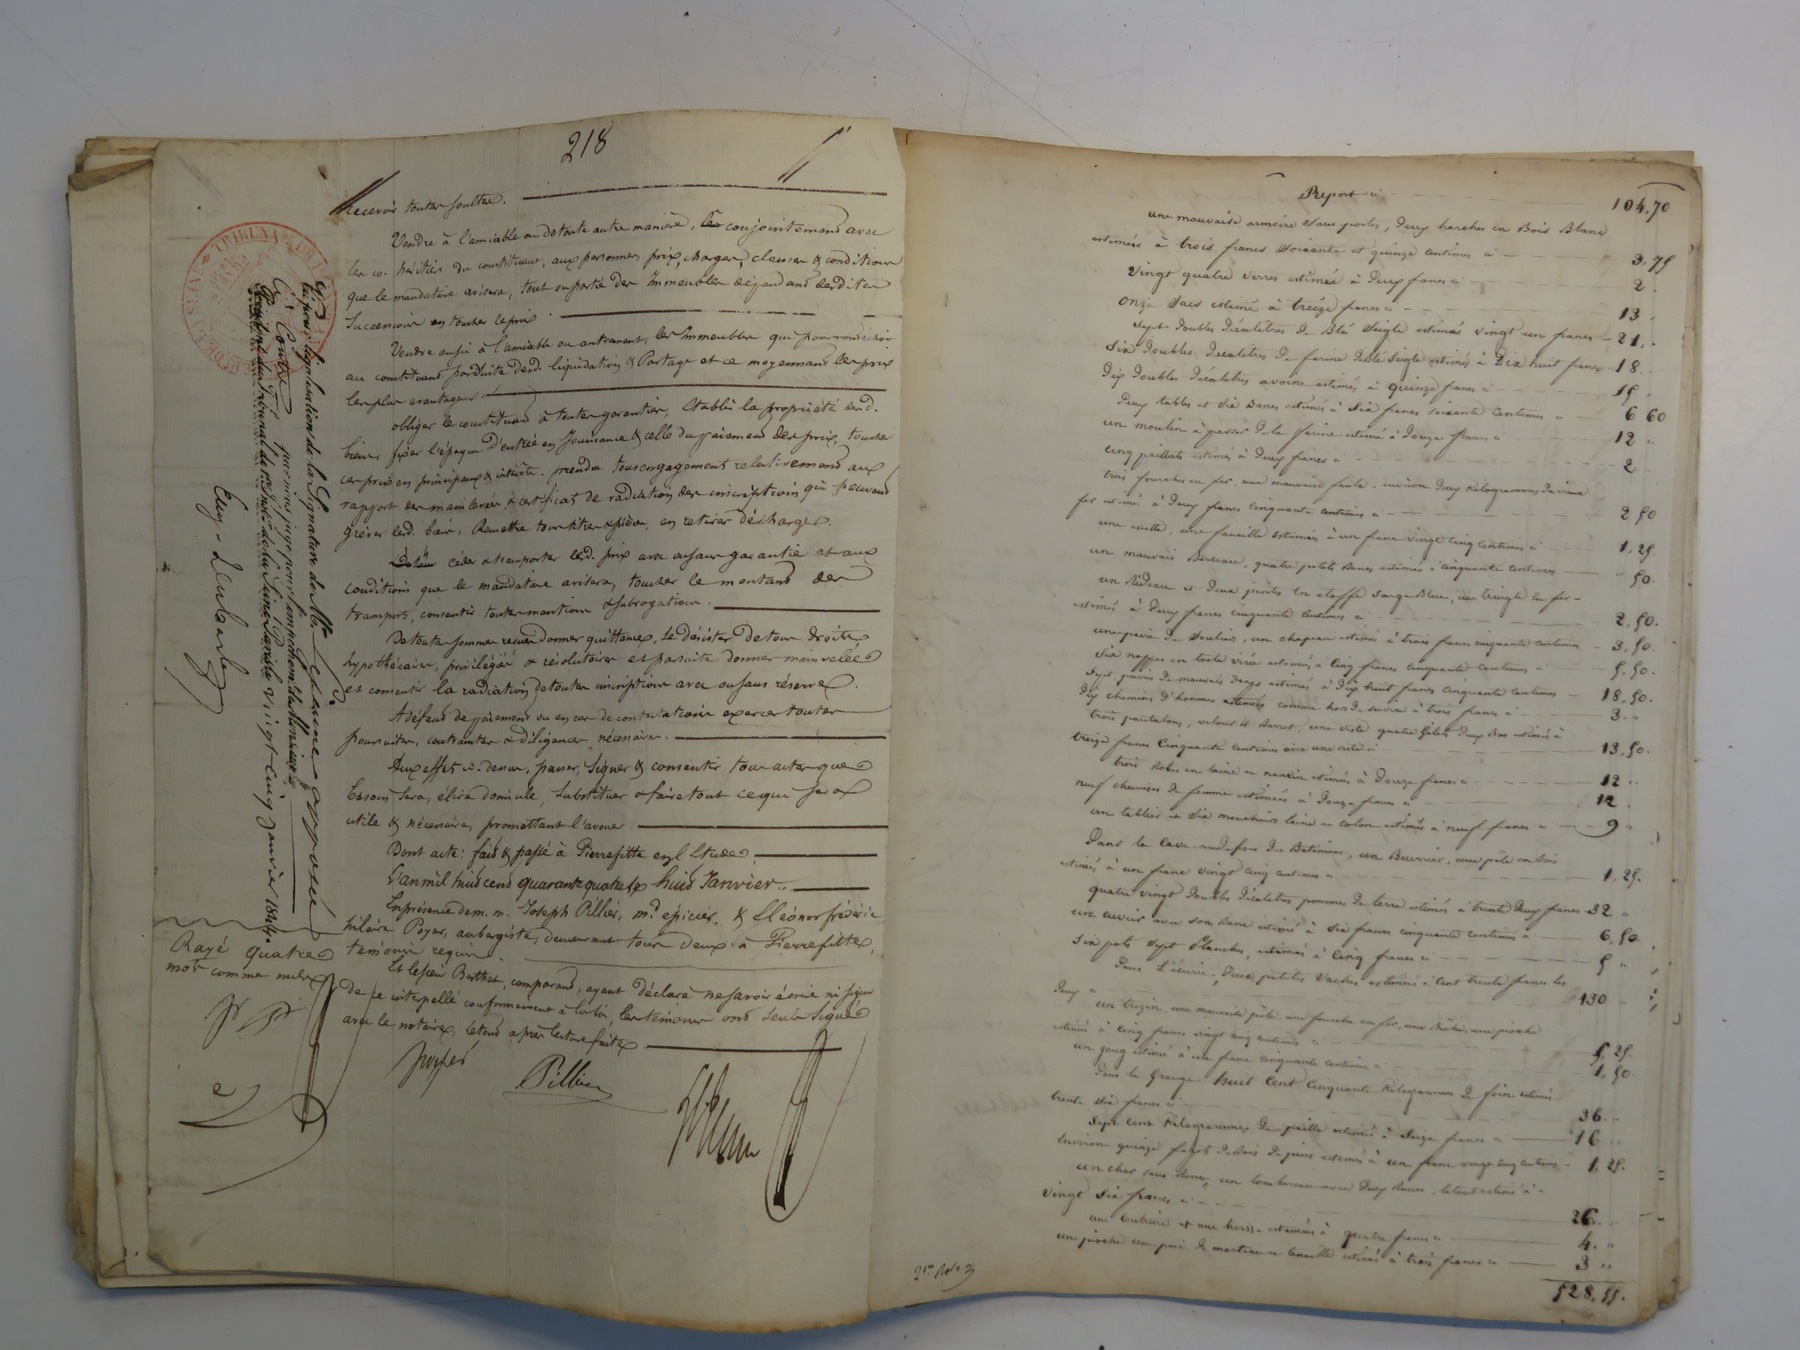 218
Recevoir toutes soultes.
Vendre à l'amiable ou de toute autre manière, conjointement avec
les co-héritiers du constituant, aux personnes, prix, charges, clauses & conditions
que le mandataire avisera, tout ou partie des Immeubles dépendant desdites
Successions en toucher le prix.
Vendre aussi à l'amiable ou autrement, les Immeubles qui pourront échoir
au constituant par suite desd. liquidation & Partage et ce moyennant les prix
les plus avantageux.
obliger le constituant à toutes garanties, Etablir la propriété desd.
biens, fixer l'époque d'entrée en Jouissance & celle du paiement des prix, toucher
ces prix en principaux & intérêts. prendre tous engagements relativement aux
rapport des mainlevées & certificat de radiation des inscriptions qui peuvent
gréver lesd. biens, Remettre tous titres & pièces, en retirer décharges.
céder & transporter lesd. prix avec ou sans garantie et aux
conditions que le mandataire avisera, toucher le montant des
transports, consentir toutes mentions & subrogations.
De toutes sommes reçues donner quittances, se désister de tous droits
hypothécaires, privilégiés & résolutoires et par suite donner mainlevée
et consentir la radiation de toutes inscriptions avec ou sans réserves.
A défaut de paiement ou en cas de contestations exercer toutes
poursuites, contraintes & diligences nécessaires.
Aux effets ci-dessus, passer, signer & consentir tous actes que
besoin sera, élire domicile, substituer & faire tout ce qui sera
utile & nécessaire, promettant l'avouer
Dont acte: fait & passé à Pierrefitte en l'étude,
L'an mil huit cent quarante quatre le huit Janvier.
En présence de m. m. Joseph Pillier, md épicier, & Eléonor frédéric
hilaire Poyer, aubergiste, demeurant tous deux à Pierrefitte,
témoins requis.
Et le sieur Berthet, comparant, ayant déclaré ne savoir écrire ni signer
de ce interpellé conformément à la loi, les témoins ont seuls signé
avec le notaire, le tout après lecture faite.
Rayé quatre
mots comme nuls
Poyer
Pillier
Vu pour légalisation de la Signature de Me Lejeune apposée
par nous juge pour l'empêchement de Monsieur le
Président du Tribunal de la Seine Paris le vingt cinq Janvier 1844.
TRIBUNAL DE
DE LA SEINE
Report ci 104.70
une mauvaise armoire sans portes, deux harches en Bois Blanc
estimées à trois francs soixante et quinze centimes ci 3.75
Vingt quatre verres estimés à Deux francs ci 2.
onze sacs estimé à treize francs ci 13
Sept doubles Décalitres de Blé Seigle estimés vingt un francs 21.
Six doubles Décalitres de farine de Blé Seigle estimés à Dix huit francs 18
Dix Doubles Décalitres avoine estimés à quinze francs ci 15
Deux tables et Six Bancs estimés à Six francs soixante centimes ci 6 60
un moulin à passer de la farine estimé à Douze francs ci 12
cinq paillats estimés à Deux francs ci 2
trois fourches en fer, une mauvaise faulx, environ Deux Kilogrammes De vieux
fer estimés à Deux francs Cinquante centimes ci 2 50
une faucille estimées à un franc vingt cinq centimes ci 1.25.
un mauvais Berceau, quatre petits Bancs estimés à cinquante centimes " 50.
un Rideau et Deux pentes en étoffe Serge Bleue, une tringle en fer
estimés à Deux francs cinquante centimes ci 2.50.
une paire de Souliers, un chapeau estimés à trois francs cinquante centimes 3.50.
Six nappes en toile estimées à Cinq francs cinquante centimes ci 5.50.
Sept paires de mauvais draps estimés à Dix huit francs Cinquante centimes 18.50.
Dix chemises d'hommes estimées comme hors de service à trois francs ci 3. "
trois pantalons, velours et Barret, une veste quatre Gilets Deux Bas estimés à
treize francs Cinquante centimes ci 13.50.
trois Robes en laine et nankin estimés à Douze francs ci 12
neuf chemises de femme estimées à Douze francs ci 12.
un tablier et Six mouchoirs laine et coton estimés à neuf francs ci 9 "
Dans la Cave au-dessous des Batiments, un Beurrier, une pèle en Bois
estimés à un franc vingt cinq centimes ci 1.25.
quatre vingt Doubles Décalitres pommes de terre estimés à trente Deux francs 32 "
une cuvier avec son Banc estimé à Six francs cinquante centimes ci 6.50
Six pots Sept Planches, estimés à Cinq francs ci 5 "
Dans L'écurie, Deux petites Vaches estimées à Cent trente francs les
Deux ci 130
une mauvaise pèle, une fourche en fer, une pioche
estimés à Cinq francs vingt cinq centimes ci 5.25.
un joug estimé à un franc Cinquante centimes ci 1.50.
Dans la Grange huit Cent Cinquante Kilogrammes De foin estimés
trente Six francs ci 36
Sept Cent Kilogrammes De paille estimés à Seize francs ci 16
Environ quinze fagots De Bois De pins estimés à un franc vingt cinq centimes 1.25.
un char sans Roues, un tombereau avec Deux Roues, le tout estimé à
vingt Six francs ci 26.
une et une herse estimés à quatre francs ci 4. "
une pioche une paire de marteau et tenaille estimés à trois francs ci 3 "
528.55.